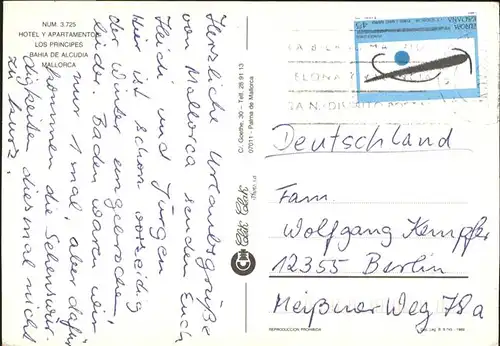 NUM. 3.725
HOTEL Y APARTAMENTOS
LOS PRINCIPES
BAHIA DE ALCUDIA
MALLORCA
Herzliche Urlaubsgrüße
von Mallorca senden Euch
Heidi und Jürgen
Hier ist schon vorzeitig
der Winter eingebrochen,
leider. Baden waren wir
nur 1 mal, aber dafür
kommen die Sehenswür-
digkeiten diesmal nicht
zu kurz.
C/. Goethe, 30 - Telf. 28 91 13
07011 - Palma de Mallorca
EUROPA
ESPAÑA
45
Deutschland
Fam.
Wolfgang Kempfer
12355 Berlin
Meißner Weg 78a
REPRODUCCION PROHIBIDA